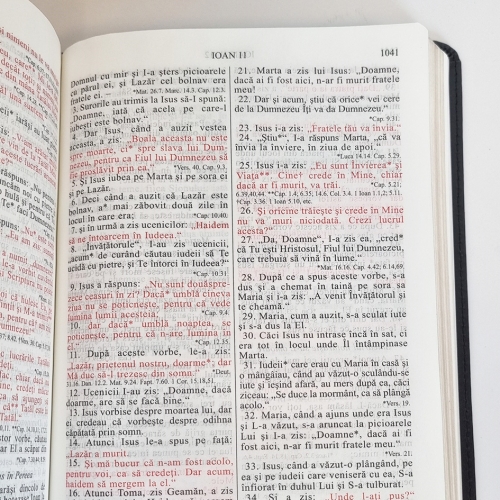 IOAN 11
1041
Domnul cu mir și I-a șters picioarele
cu părul ei, și Lazăr cel bolnav era
fratele ei. –
*Mat. 26.7. Marc. 14.3. Cap. 12.3.
3. Surorile au trimis la Isus să-I spună:
„Doamne, iată că acela pe care-l
iubești este bolnav.“
4. Dar Isus, când a auzit vestea
aceasta, a zis: „Boala aceasta nu este
spre moarte, ci* spre slava lui Dum-
nezeu, pentru ca Fiul lui Dumnezeu să
fie proslăvit prin ea.“
*Vers. 40. Cap. 9.3.
5. Și Isus iubea pe Marta și pe sora ei
și pe Lazăr.
6. Deci când a auzit că Lazăr este
bolnav, a* mai zăbovit două zile în
locul în care era;
*Cap. 10.40.
7. și în urmă a zis ucenicilor: „Haidem
să ne întoarcem în Iudeea.“
8. „Învățătorule“, I-au zis ucenicii,
„acum* de curând căutau iudeii să Te
ucidă cu pietre, și Te întorci în Iudeea?“
*Cap. 10.31.
9. Isus a răspuns: „Nu sunt douăspre-
zece ceasuri în zi? Dacă* umblă cineva
ziua nu se poticnește, pentru că vede
lumina lumii acesteia;
*Cap. 9.4.
10. dar dacă* umblă noaptea, se
poticnește, pentru că n-are lumina în
el.“
*Cap. 12.35.
11. După aceste vorbe, le-a zis:
„Lazăr, prietenul nostru, doarme*; dar
Mă duc să-l scol din somn.“
*Deut.
31.16. Dan. 12.2. Mat. 9.24. Fapt. 7.60. 1 Cor. 15.18,51.
12. Ucenicii I-au zis: „Doamne, dacă
doarme, are să se facă bine.“
13. Isus vorbise despre moartea lui, dar
ei credeau că vorbește despre odihna
căpătată prin somn.
14. Atunci Isus le-a spus pe față:
„Lazăr a murit.
15. Și mă bucur că n-am fost acolo,
pentru voi, ca să credeți. Dar acum,
haidem să mergem la el.“
16. Atunci Toma, zis Geamăn, a zis
21. Marta a zis lui Isus: „Doamne,
dacă ai fi fost aici, n-ar fi murit fratele
meu!
22. Dar și acum, știu că orice* vei cere
de la Dumnezeu Îți va da Dumnezeu.“
*Cap. 9.31.
23. Isus i-a zis: „Fratele tău va învia.“
24. „Știu*“, I-a răspuns Marta, „că va
învia la înviere, în ziua de apoi.“
*Luca 14.14. Cap. 5.29.
25. Isus i-a zis: „Eu sunt Învierea* și
Viața**. Cine† crede în Mine, chiar
dacă ar fi murit, va trăi.
*Cap. 5.21;
6.39,40,44. **Cap. 1.4; 6.35; 14.6. Col. 3.4. 1 Ioan 1.1,2; 5.11.
†Cap. 3.36. 1 Ioan 5.10, etc.
26. Și oricine trăiește și crede în Mine
nu va muri niciodată. Crezi lucrul
acesta?“
27. „Da, Doamne“, I-a zis ea, „cred*
că Tu ești Hristosul, Fiul lui Dumnezeu,
care trebuia să vină în lume.“
*Mat. 16.16. Cap. 4.42; 6.14,69.
28. După ce a spus aceste vorbe, s-a
dus și a chemat în taină pe sora sa
Maria și i-a zis: „A venit Învățătorul și
te cheamă.“
29. Maria, cum a auzit, s-a sculat iute
și s-a dus la El.
30. Căci Isus nu intrase încă în sat, ci
era tot în locul unde Îl întâmpinase
Marta.
31. Iudeii* care erau cu Maria în casă și
o mângâiau, când au văzut-o sculându-se
iute și ieșind afară, au mers după ea, căci
ziceau: „Se duce la mormânt, ca să plângă
acolo.“
*Vers. 19.
32. Maria, când a ajuns unde era Isus
și L-a văzut, s-a aruncat la picioarele
Lui și I-a zis: „Doamne*, dacă ai fi
fost aici, n-ar fi murit fratele meu.“
*Vers. 21.
33. Isus, când a văzut-o plângând, pe
ea și pe iudeii care veniseră cu ea, S-a
înfiorat în duhul Lui și S-a tulburat.
34. Și a zis: „Unde l-ați pus?“